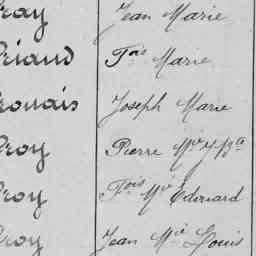 ray Jean Marie
riaud Fois Marie
ronais Joseph Marie
roy Pierre Mie J. Bte
roy Fois Mie Edouard
roy Jean Mie Louis